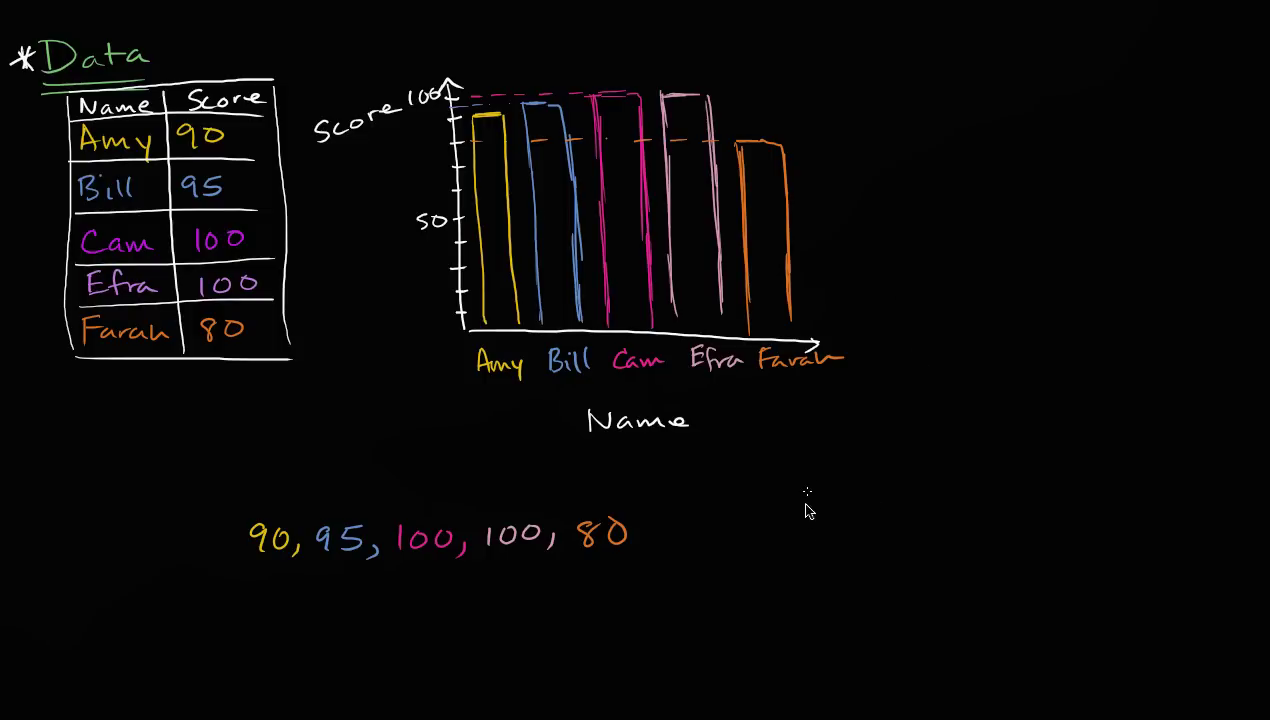 *Data
Name Score
Amy 90
Bill 95
Cam 100
Efra 100
Farah 80
Score 100
50
Amy Bill Cam Efra Farah
Name
90, 95, 100, 100, 80